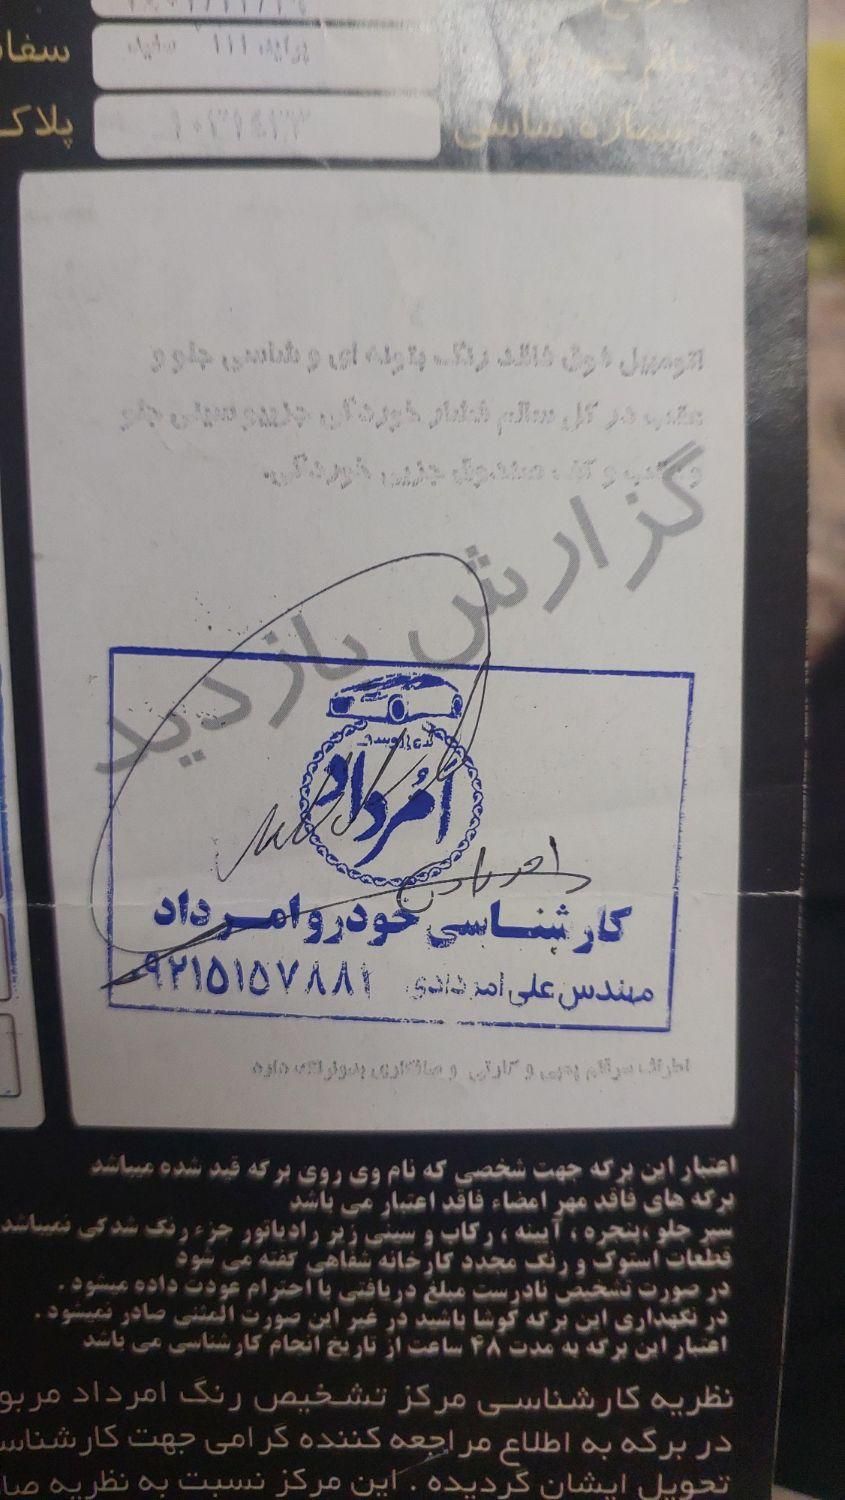 سفا
پراید 111 سفید
پلاک
شماره شاسی
اتومبیل فوق فاقد رنگ بتونه ای و شاسی جلو و
عقب در کل سالم فشار خوردگی جزیی و سینی جلو
و عقب و کف صندوق جزیی خوردگی.
گزارش بازدید
اُمرداد
کارشناسی خودرو امرداد
مهندس علی امردادی ۰۹۲۱۵۱۵۷۸۸۱
و صافکاری بدون رنگ دارد
اعتبار این برگه جهت شخصی که نام وی روی برگه قید شده میباشد
برگه های فاقد مهر امضاء فاقد اعتبار می باشد
سپر جلو ،پنجره ، آیینه ، رکاب و سینی زیر رادیاتور جزء رنگ شدگی نمیباشد
قطعات استوک و رنگ مجدد کارخانه شفاهی گفته می شود
در صورت تشخیص نادرست مبلغ دریافتی با احترام عودت داده میشود .
در نگهداری این برگه کوشا باشید در غیر این صورت المثنی صادر نمیشود .
اعتبار این برگه به مدت ۴۸ ساعت از تاریخ انجام کارشناسی می باشد
نظریه کارشناسی مرکز تشخیص رنگ امرداد مربو
در برگه به اطلاع مراجعه کننده گرامی جهت کارشناس
تحویل ایشان گردیده . این مرکز نسبت به نظریه صا